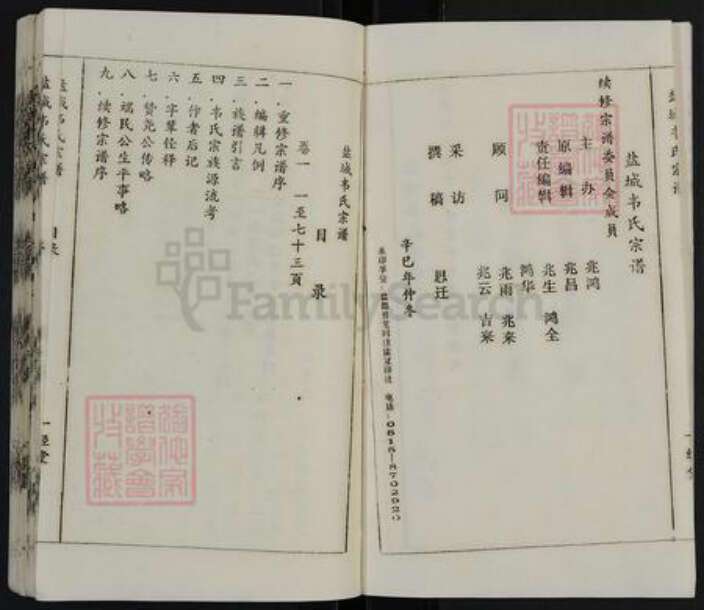 盐城韦氏宗谱
盐城韦氏宗谱
续修宗谱委员会成员
主办 兆鸿
兆昌
原编辑 兆生 鸿全
责任编辑 鸿华
顾问 兆雨 兆来
兆云 吉来
采访
撰稿 恩迁
辛巳年仲冬
电话：0515-8702920
盐城韦氏宗谱
目录
卷一 一至七十三页
一．重修宗谱序
二．编辑凡例
三．族谱引言
四．韦氏宗族源流考
五．作者后记
六．字辈诠释
七．赞尧公传略
八．福民公生平事略
九．续修宗谱序
盐城韦氏宗谱
目录
一经堂
盐城韦氏宗谱
FamilySearch